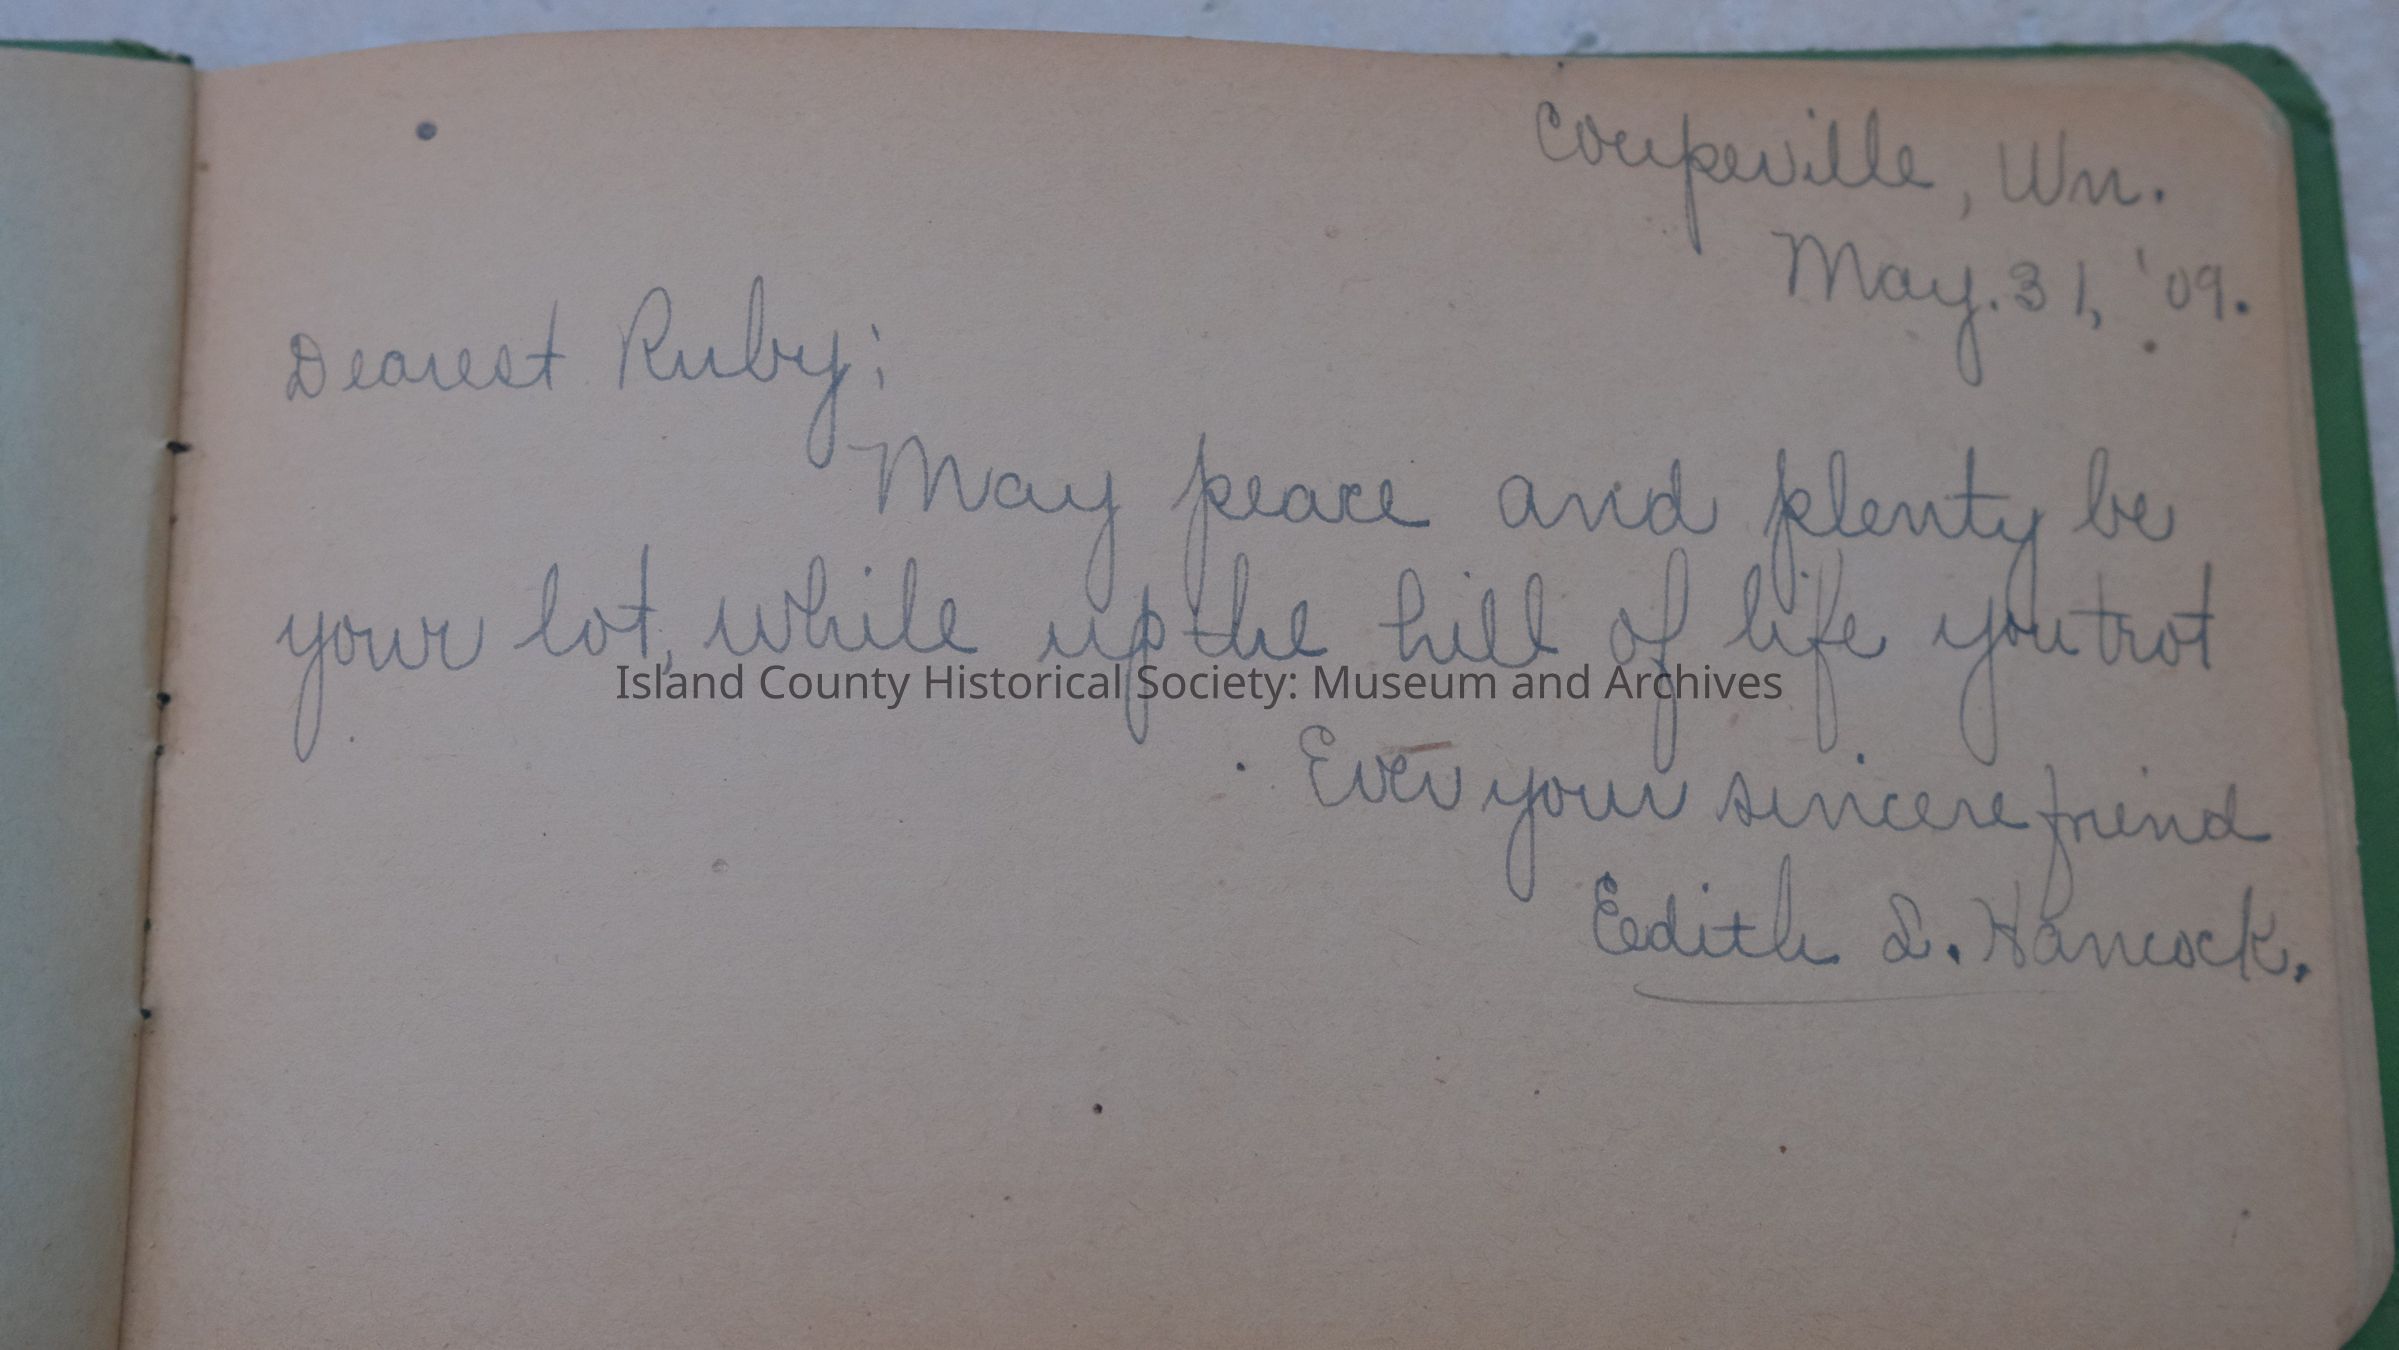 Coupeville, Wn.
May. 31, '09.
Dearest Ruby;
May peace and plenty be
your lot, while up the hill of life you trot
Island County Historical Society: Museum and Archives
Ever your sincere friend
Edith L. Hancock.